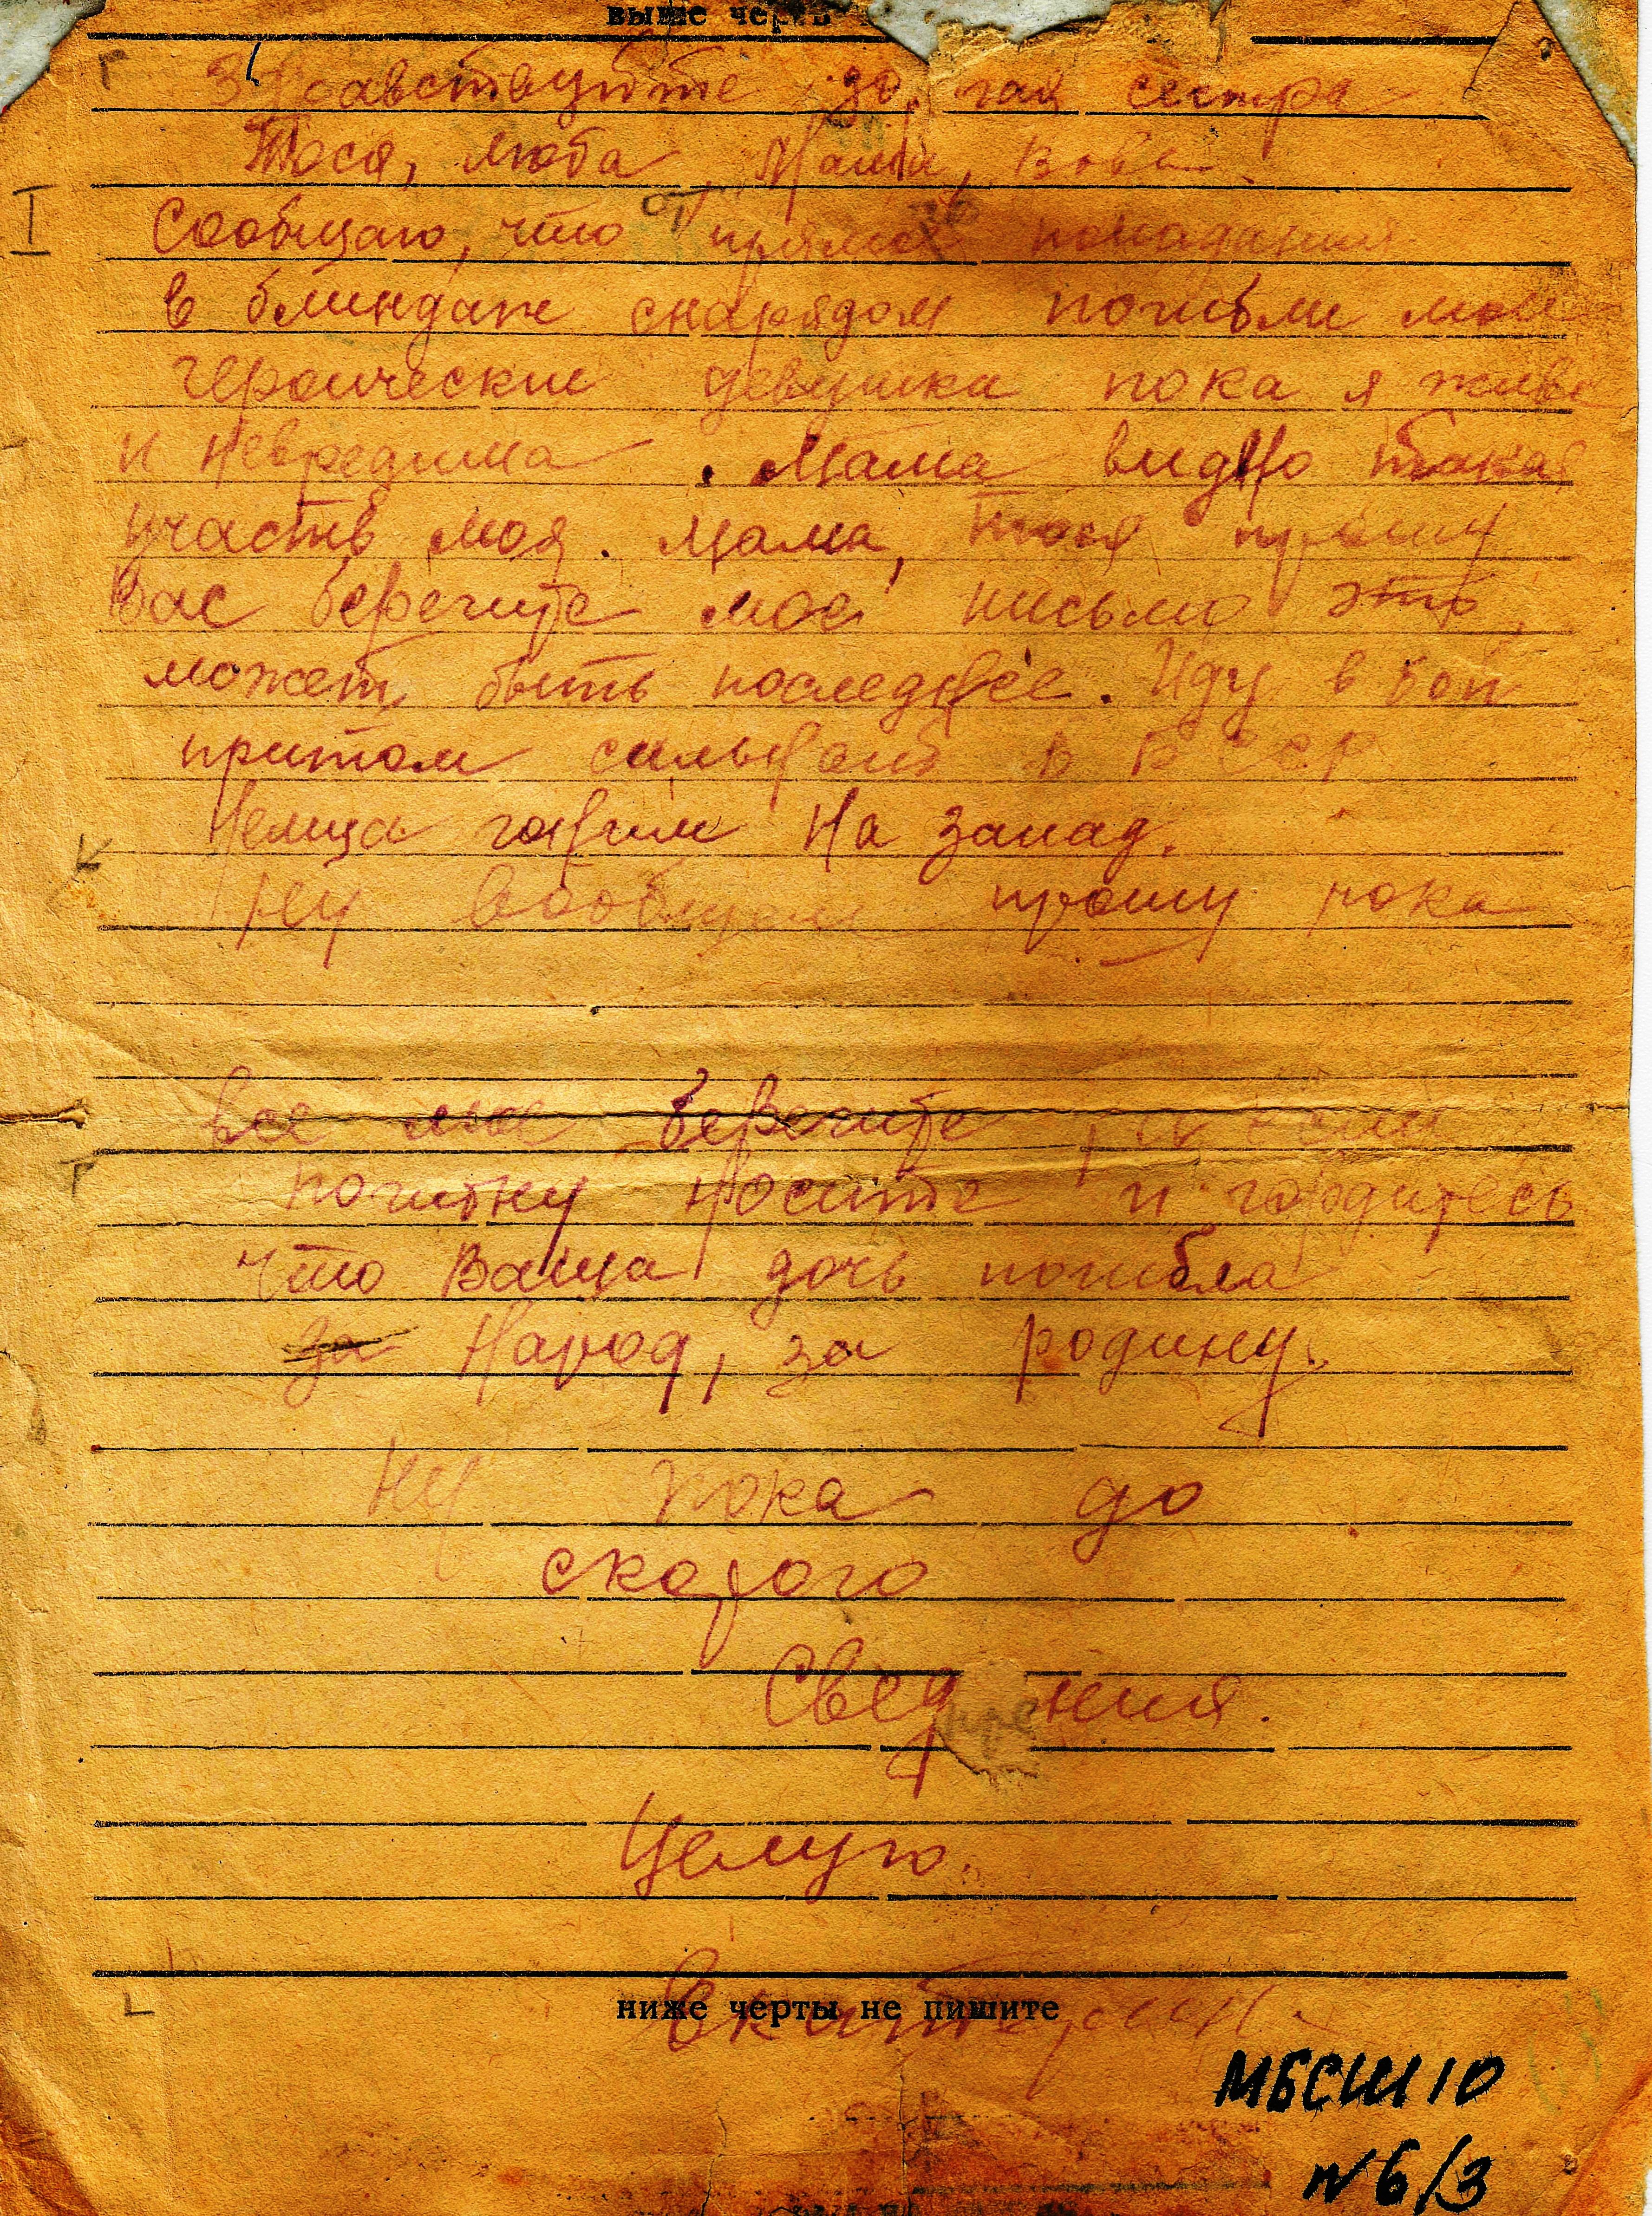 выше черты
Здравствуйте дорогая сестра
Тося, люба, Мама, Вова
Сообщаю, что от прямого попадания
в блиндаж снарядом погибли мои
героические девушки пока я жива
и невредима. Мама видно такая
участь моя. Мама, Тося прошу
Вас берегите мое письмо это
может быть последнее. Иду в бой
притом сильный в БССР
Немца гоним На запад.
Ну вообщем прошу пока
все мое берегите, а если
погибну Носите и гордитесь
что Ваша дочь погибла
за Народ, за родину.
Ну пока до
скорого
Сведния.
Целую.
ниже черты не пишите
МБСШ 10
№ 6/3